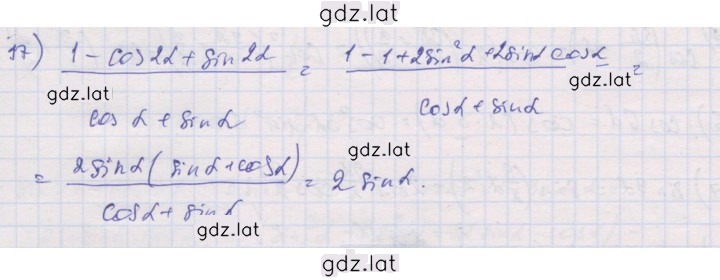 gdz.lat
17) (1 - cos2α + sin2α)/(cosα + sinα) = (1 - 1 + 2sin²α + 2sinα cosα)/(cosα + sinα) =
gdz.lat gdz.lat
gdz.lat
= (2sinα(sinα + cosα))/(cosα + sinα) = 2sinα.
gdz.lat
gdz.lat